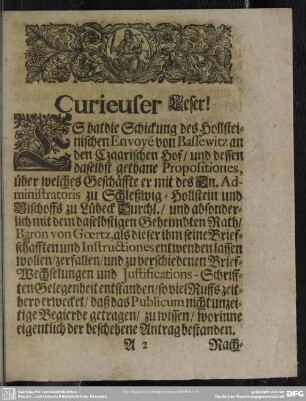 Curieuser Leser!
ES hat die Schickung des Hollstei-
nischen Envoyé von Bassewitz an
den Czaarischen Hof/ und dessen
daselbst gethane Propositiones,
über welches Geschäffte er mit des Hn. Ad-
ministratoris zu Schleßwig-Hollstein und
Bischoffs zu Lübeck Durchl./ und absonder-
lich mit dem daselbstigen Geheimbten Rath/
Baron von Gœrtz, als dieser ihm seine Brief-
schafften und Instructiones entwenden lassen
wollen/ zerfallen/ und zu verschiedenen Brief-
Wechselungen und Justifications-Schriff-
ten Gelegenheit entstanden/ so viel Ruffs zeit-
hero erwecket/ daß das Publicum nicht unzei-
tige Begierde getragen/ zu wissen/ worinne
eigentlich der beschehene Antrag bestanden.
A 2 Nach-